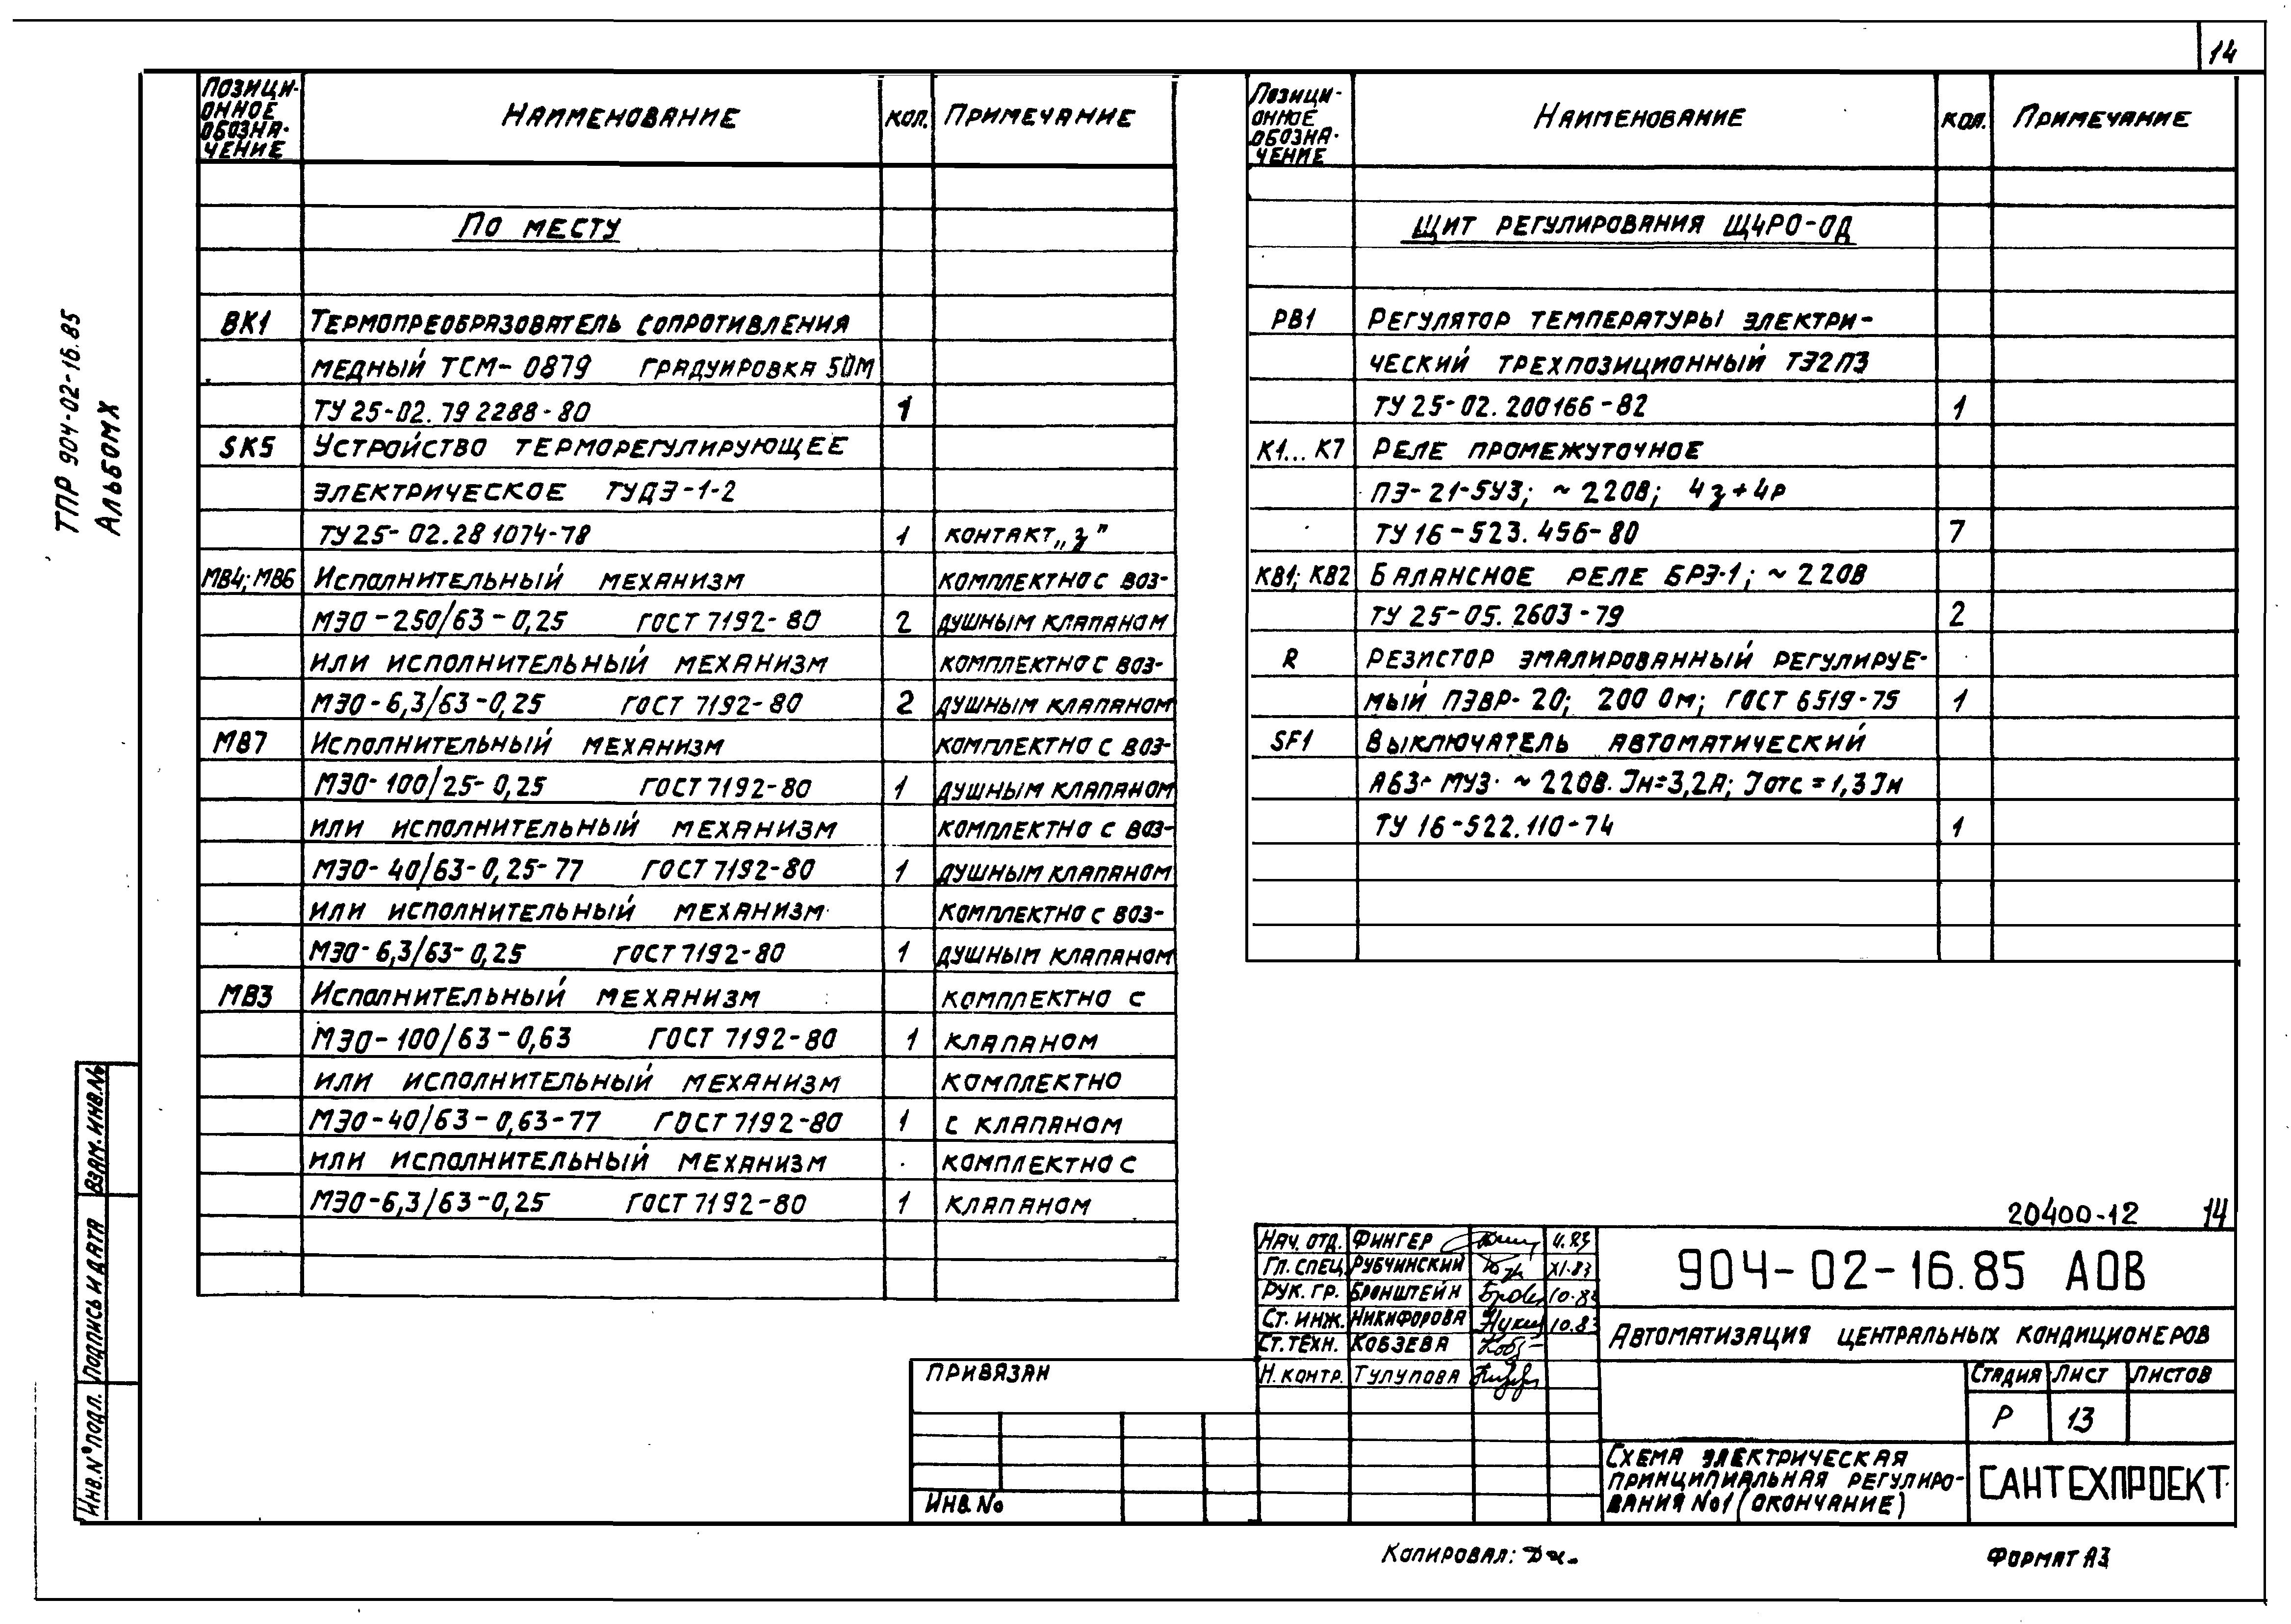 14
ТПР 904-02-16.85
Альбом X
Позици-
онное
обозна-
чение
Наименование
Кол.
Примечание
По месту
ВК1 Термопреобразователь сопротивления
медный ТСМ-0879 градуировка 50М
ТУ 25-02.792288-80 1
SK5 Устройство терморегулирующее
электрическое ТУДЭ-1-2
ТУ 25-02.281074-78 1 контакт „з"
МВ4; МВ6 Исполнительный механизм комплектно с воз-
МЭО-250/63-0,25 ГОСТ 7192-80 2 душным клапаном
или исполнительный механизм комплектно с воз-
МЭО-6,3/63-0,25 ГОСТ 7192-80 2 душным клапаном
МВ7 Исполнительный механизм комплектно с воз-
МЭО-100/25-0,25 ГОСТ 7192-80 1 душным клапаном
или исполнительный механизм комплектно с воз-
МЭО-40/63-0,25-77 ГОСТ 7192-80 1 душным клапаном
или исполнительный механизм комплектно с воз-
МЭО-6,3/63-0,25 ГОСТ 7192-80 1 душным клапаном
МВ3 Исполнительный механизм комплектно с
МЭО-100/63-0,63 ГОСТ 7192-80 1 клапаном
или исполнительный механизм комплектно
МЭО-40/63-0,63-77 ГОСТ 7192-80 1 с клапаном
или исполнительный механизм комплектно с
МЭО-6,3/63-0,25 ГОСТ 7192-80 1 клапаном
Позици-
онное
обозна-
чение
Наименование
Кол.
Примечание
Щит регулирования Щ4РО-ОД
РВ1 Регулятор температуры электри-
ческий трехпозиционный ТЭ2П3
ТУ 25-02.200166-82 1
К1...К7 Реле промежуточное
ПЭ-21-5У3; ~220В; 4з+4р
ТУ 16-523.456-80 7
КВ1; КВ2 Балансное реле БРЭ-1; ~220В
ТУ 25-05.2603-79 2
R Резистор эмалированный регулируе-
мый ПЭВР-20; 200 Ом; ГОСТ 6519-75 1
SF1 Выключатель автоматический
АБ3-МУ3· ~220В. Iн=3,2А; Iотс=1,3Iн
ТУ 16-522.110-74 1
20400-12 14
Нач. отд. Фингер
Гл. спец. Рубчинский XI-83
Рук. гр. Бронштейн 10.83
Ст. инж. Никифорова 10.83
Ст. техн. Кобзева
Н. контр. Тулупова
904-02-16.85 АОВ
Автоматизация центральных кондиционеров
Стадия Лист Листов
Р 13
Схема электрическая
принципиальная регулиро-
вания №1 (окончание)
САНТЕХПРОЕКТ
Привязан
Инв. №
Взам. инв. №
Подпись и дата
Инв. № подл.
Копировал:
Формат А3